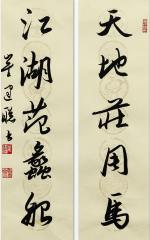 天地莊周馬
江湖范蠡船